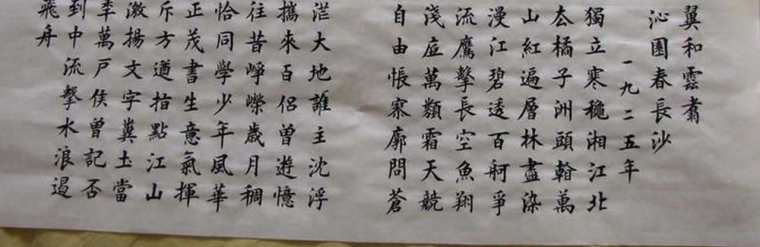 翼和雲
沁園春長沙
一九二五年
獨立寒穐湘江北
厺橘子洲頭萬
山紅遍層林盡染
漫江碧透百舸爭
流鷹擊長空魚翔
淺底萬類霜天競
自由悵寥廓問蒼
茫大地誰主沈浮
攜來百侶曾遊憶
往昔崢嶸歲月稠
恰同學少年風華
正茂書生意氣揮
斥方遒指點江山
激揚文字糞土當
秊萬戶侯曾記否
到中流擊水浪遏
飛舟